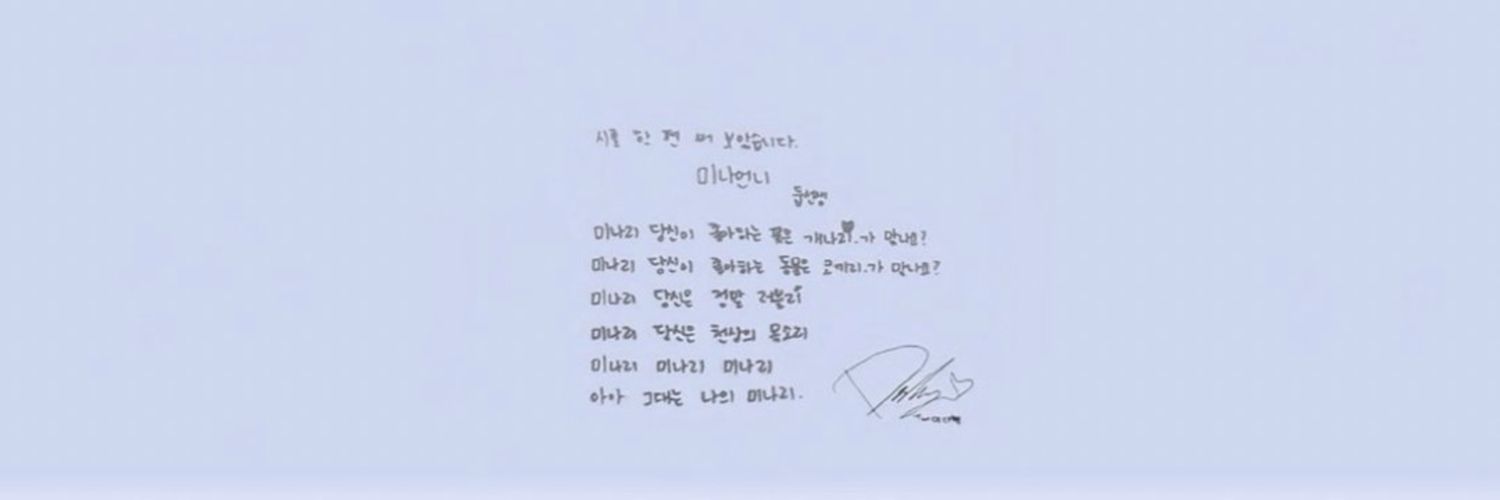 시를 한 편 써 보았습니다.
미나언니
미나리 당신이 좋아하는 꽃은 개나리.가 맞나요?
미나리 당신이 좋아하는 동물은 코끼리.가 맞나요?
미나리 당신은 정말 러블리
미나리 당신은 천상의 목소리
미나리 미나리 미나리
아아 그대는 나의 미나리.